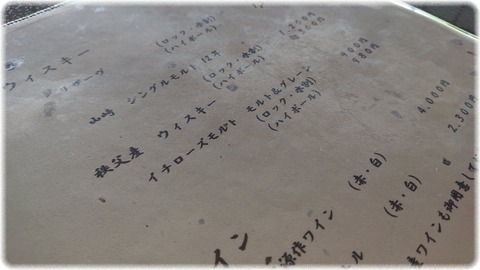 ウイスキー
(ロック・水割)
(ハイボール)
山崎 シングルモルト 12年
(ロック・水割)
(ハイボール)
秩父産 ウイスキー
イチローズモルト モルト&グレーン
(ロック・水割) 900円
(ハイボール) 980円
イン
源作ワイン (赤・白) 4.000円
ル (赤・白) 2.300円
産ワインも御用意して